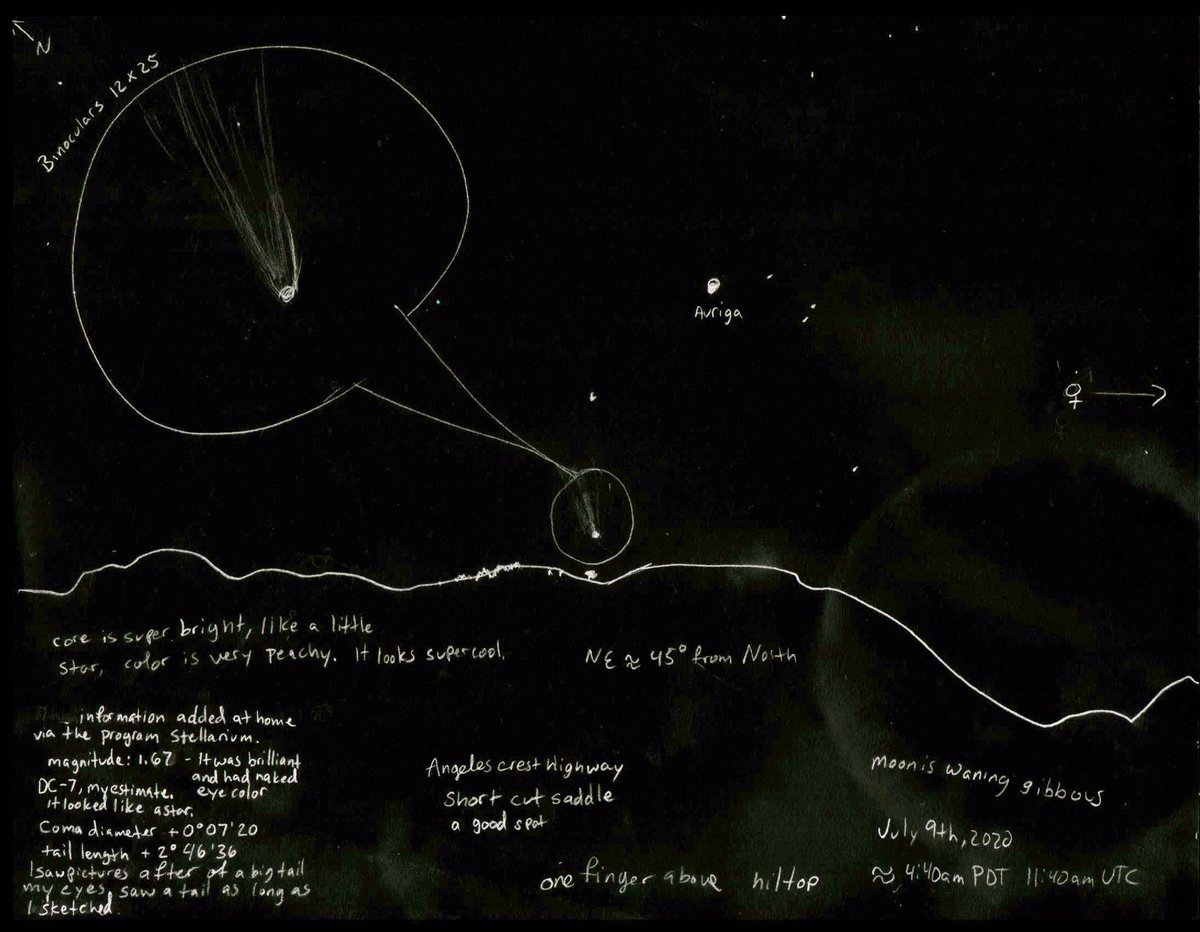 N
Binoculars 12x25
Auriga
♀
core is super bright, like a little
star, color is very peachy. It looks supercool.
NE ≈ 45° from North
information added at home
via the program Stellarium.
magnitude: 1.67 - It was brilliant
and had naked
DC-7, my estimate. eye color
it looked like a star.
Coma diameter +0°07'20
tail length + 2°46'36
I saw pictures after of a big tail
my eyes, saw a tail as long as
I sketched.
Angeles crest Highway
Short cut saddle
a good spot
one finger above hilltop
Moon is waning gibbous
July 9th, 2020
≈ 4:40am PDT 11:40am UTC